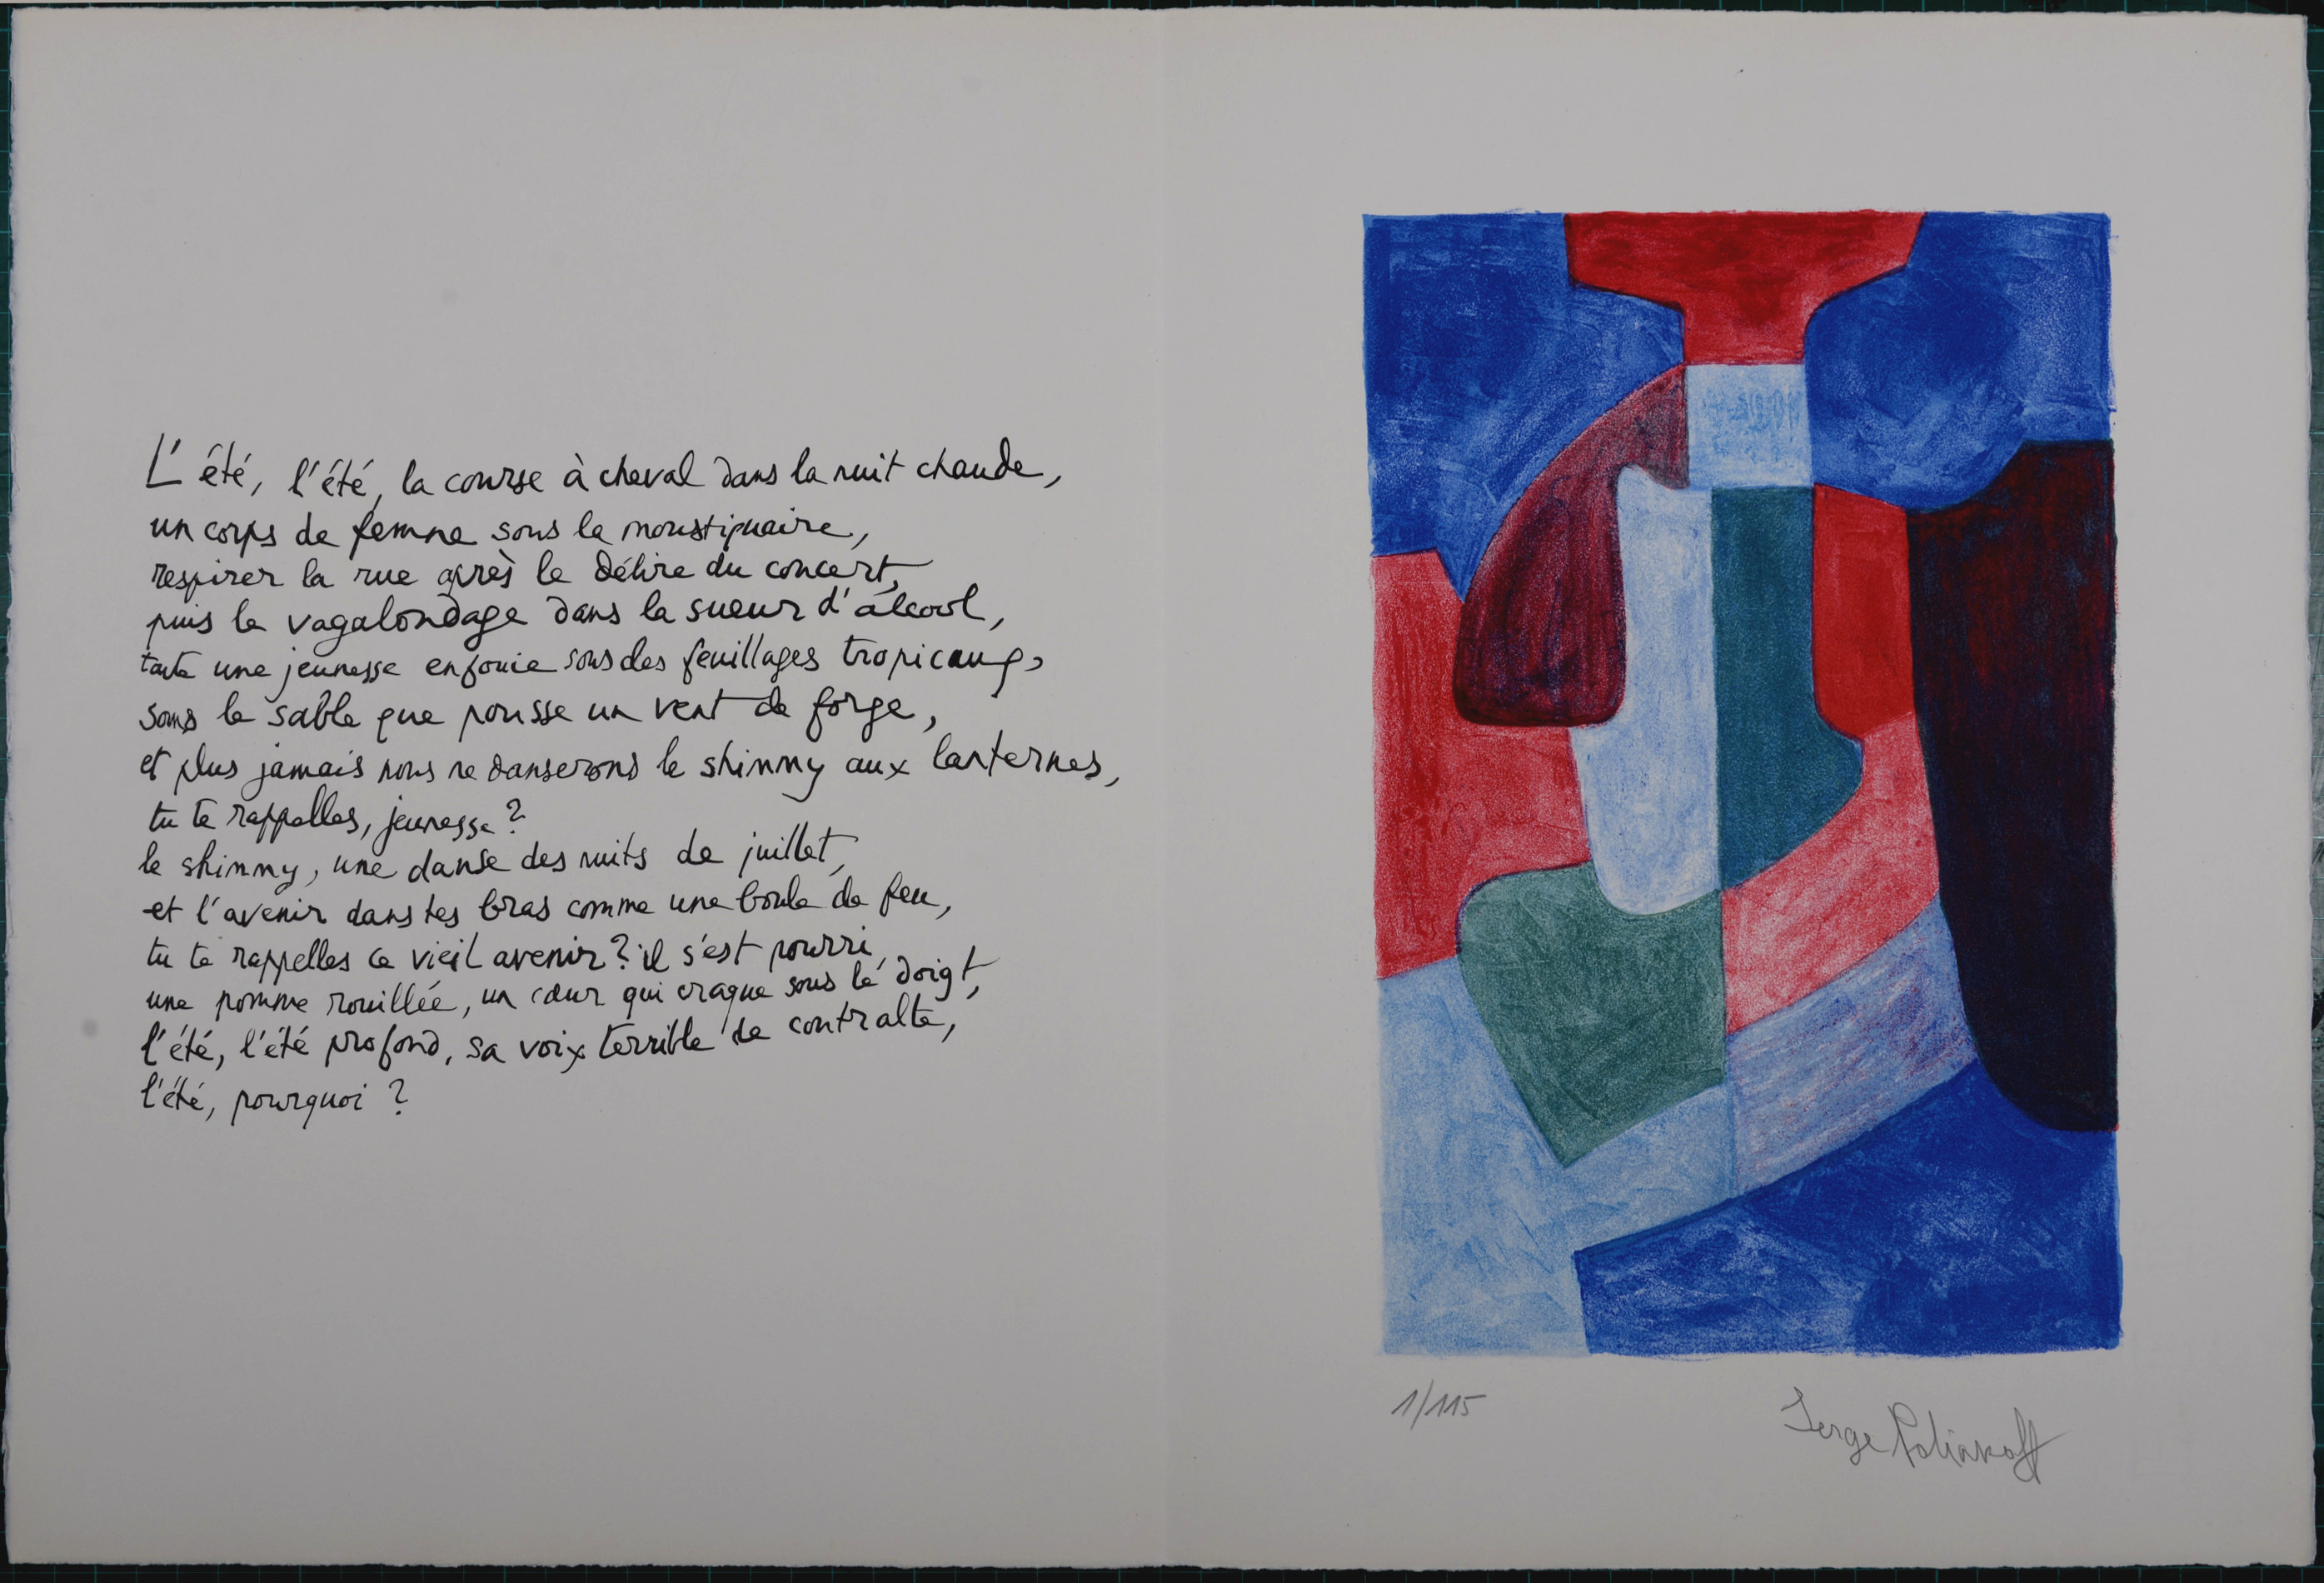 L'été, l'été, la course à cheval dans la nuit chaude,
un corps de femme sous la moustiquaire,
respirer la rue après le délire du concert,
puis le vagabondage dans la sueur d'alcool,
toute une jeunesse enfouie sous des feuillages tropicaux,
sous le sable que pousse un vent de forge,
et plus jamais nous ne danserons le shimmy aux lanternes,
tu te rappelles, jeunesse ?
le shimmy, une danse des nuits de juillet,
et l'avenir dans tes bras comme une boule de feu,
tu te rappelles ce vieil avenir ? il s'est pourri,
une pomme rouillée, un cœur qui craque sous le doigt,
l'été, l'été profond, sa voix terrible de contralte,
l'été, pourquoi ?
1/115
Serge Poliakoff